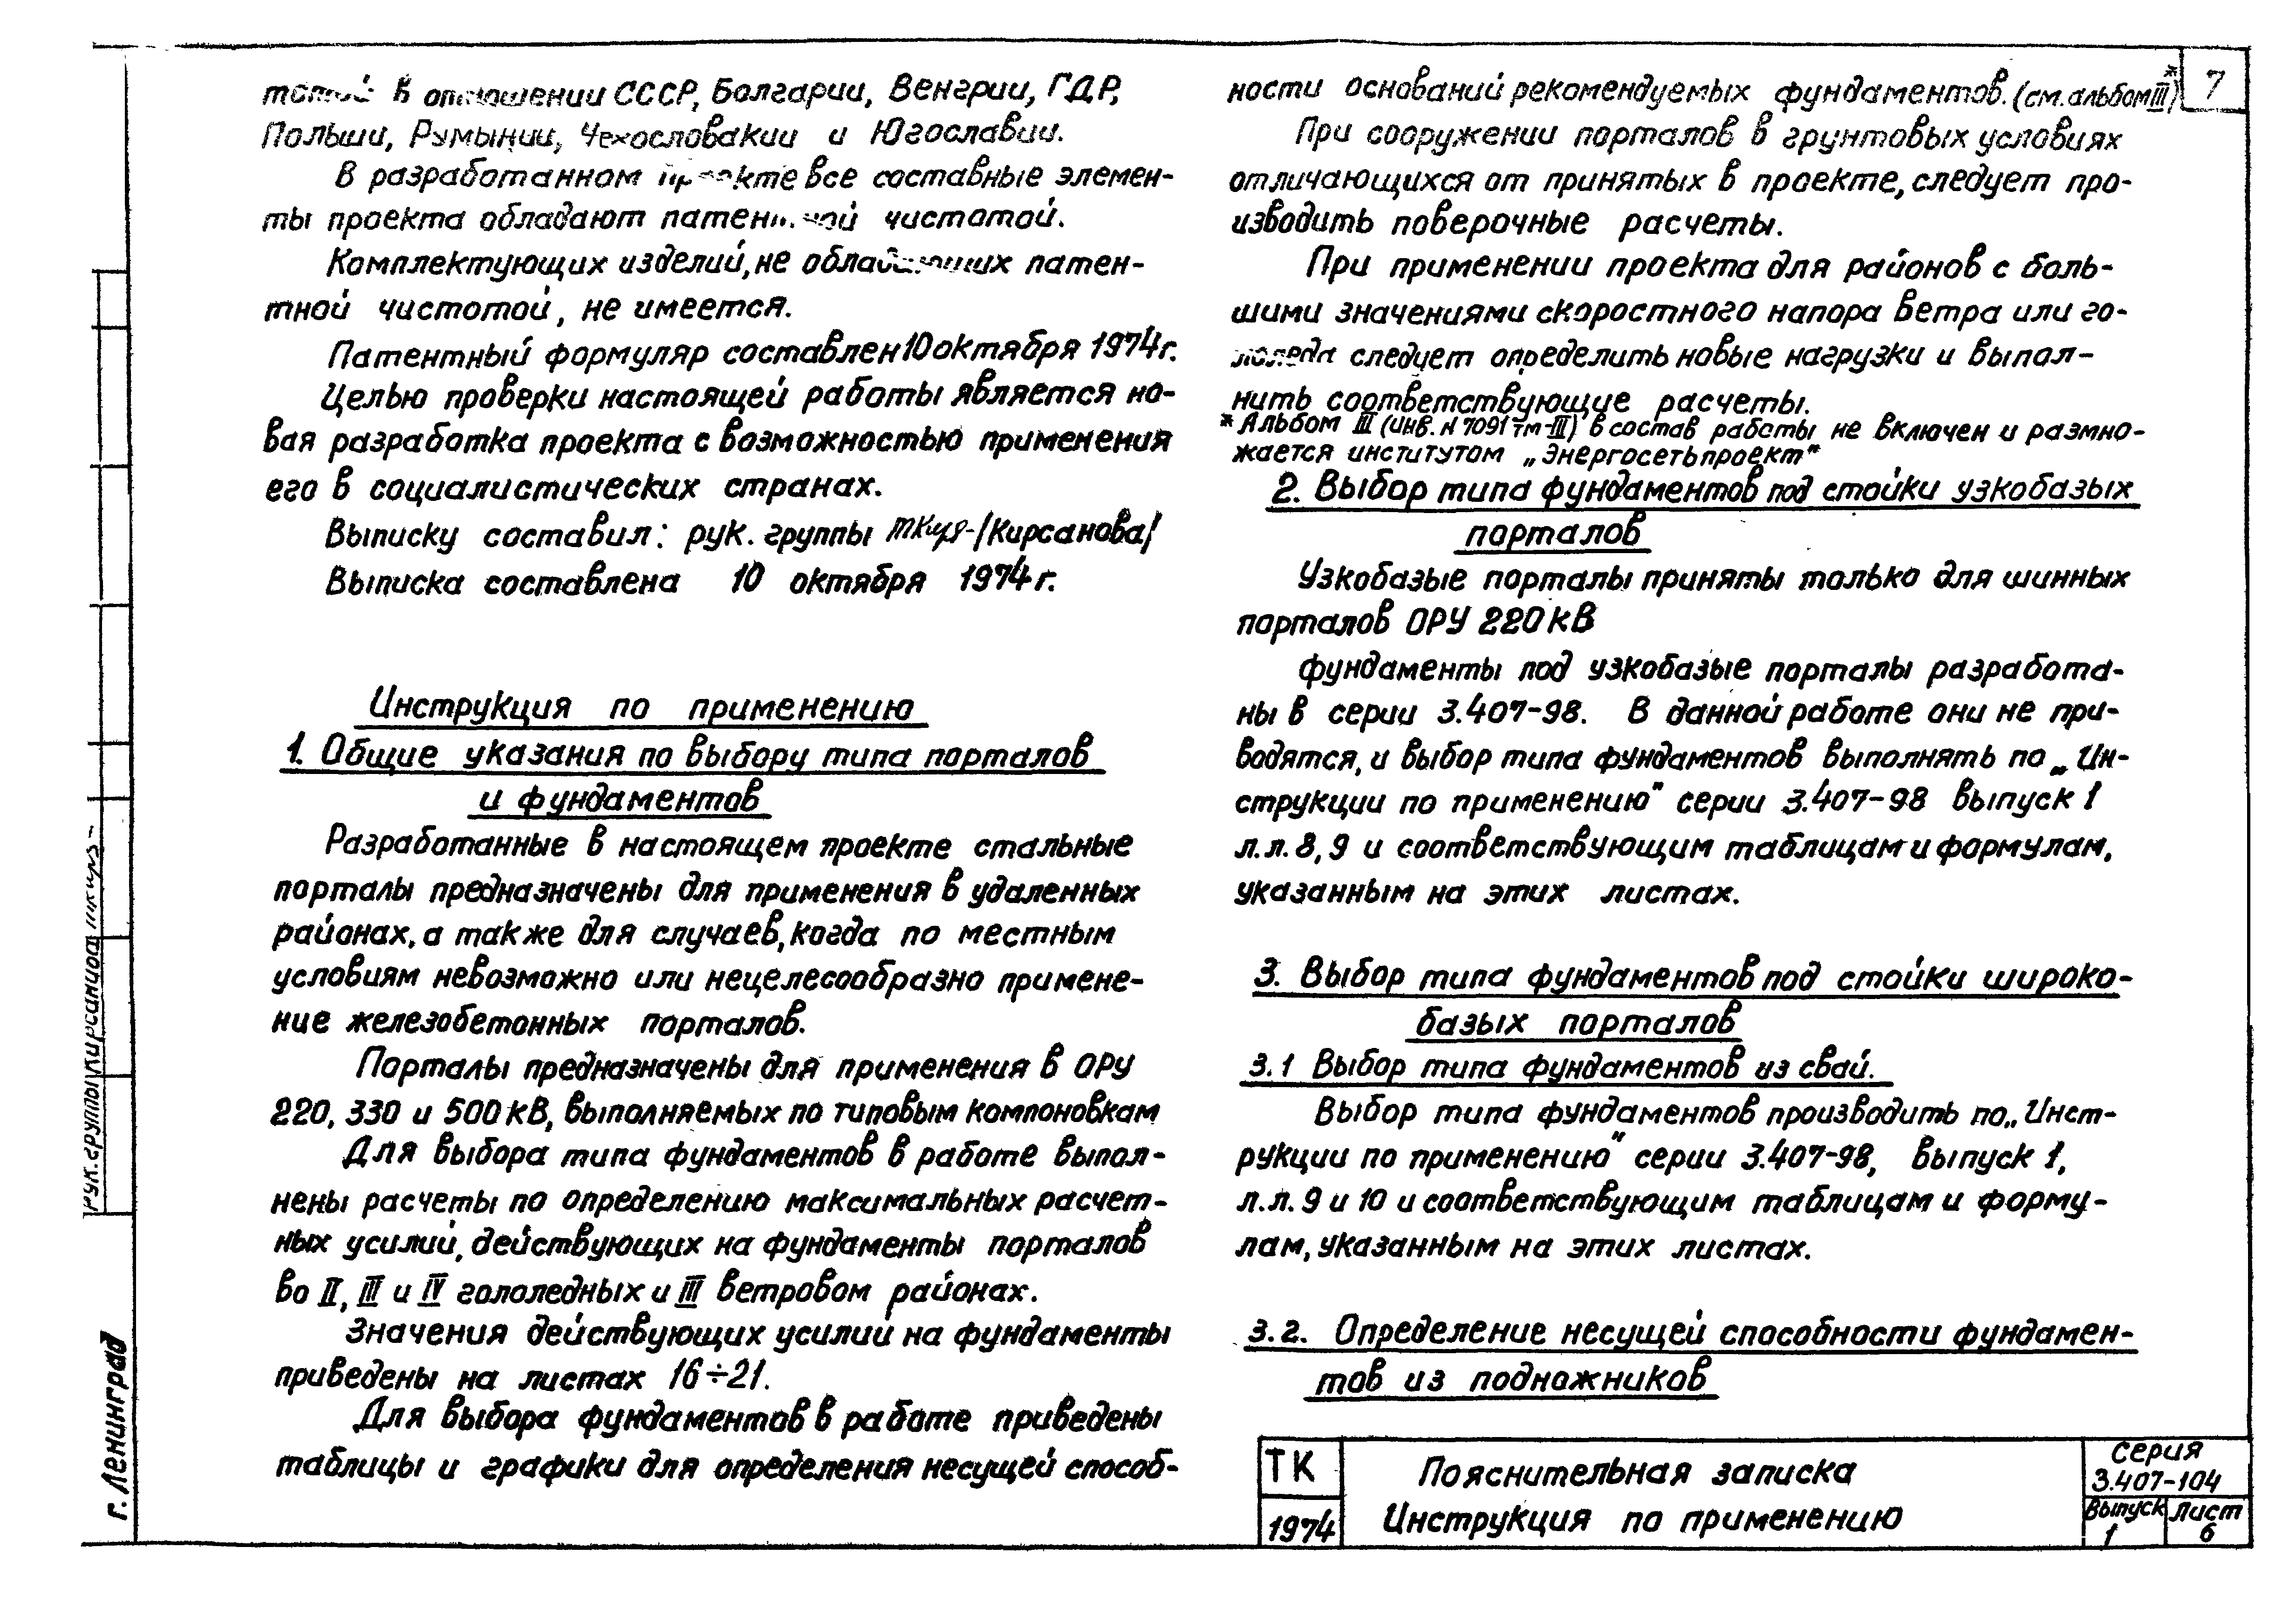 тотой в отношении СССР, Болгарии, Венгрии, ГДР,
Польши, Румынии, Чехословакии и Югославии.
В разработанном проекте все составные элемен-
ты проекта обладают патентной чистотой.
Комплектующих изделий, не обладающих патен-
тной чистотой, не имеется.
Патентный формуляр составлен 10 октября 1974г.
Целью проверки настоящей работы является но-
вая разработка проекта с возможностью применения
его в социалистических странах.
Выписку составил: рук. группы /Кирсанова/
Выписка составлена 10 октября 1974г.
Инструкция по применению
1. Общие указания по выбору типа порталов
и фундаментов
Разработанные в настоящем проекте стальные
порталы предназначены для применения в удаленных
районах, а также для случаев, когда по местным
условиям невозможно или нецелесообразно примене-
ние железобетонных порталов.
Порталы предназначены для применения в ОРУ
220, 330 и 500 кВ, выполняемых по типовым компоновкам
Для выбора типа фундаментов в работе выпол-
нены расчеты по определению максимальных расчет-
ных усилий, действующих на фундаменты порталов
во II, III и IV гололедных и III ветровом районах.
Значения действующих усилий на фундаменты
приведены на листах 16÷21.
Для выбора фундаментов в работе приведены
таблицы и графики для определения несущей способ-
ности оснований рекомендуемых фундаментов. (см. альбом III*)
При сооружении порталов в грунтовых условиях
отличающихся от принятых в проекте, следует про-
изводить поверочные расчеты.
При применении проекта для районов с боль-
шими значениями скоростного напора ветра или го-
лоледа следует определить новые нагрузки и выпол-
нить соответствующие расчеты.
* Альбом III (инв. н 7091тм-III) в состав работы не включен и размно-
жается институтом „Энергосетьпроект"
2. Выбор типа фундаментов под стойки узкобазых
порталов
Узкобазые порталы приняты только для шинных
порталов ОРУ 220 кВ
Фундаменты под узкобазые порталы разработа-
ны в серии 3.407-98. В данной работе они не при-
водятся, и выбор типа фундаментов выполнять по „Ин-
струкции по применению" серии 3.407-98 выпуск 1
л.л. 8, 9 и соответствующим таблицам и формулам,
указанным на этих листах.
3. Выбор типа фундаментов под стойки широко-
базых порталов
3.1 Выбор типа фундаментов из свай.
Выбор типа фундаментов производить по „Инст-
рукции по применению" серии 3.407-98, выпуск 1,
л.л. 9 и 10 и соответствующим таблицам и форму-
лам, указанным на этих листах.
3.2. Определение несущей способности фундамен-
тов из подножников
7
Рук. группы Кирсанова
г. Ленинград
ТК
1974
Пояснительная записка
Инструкция по применению
Серия
3.407-104
Выпуск
1
Лист
6